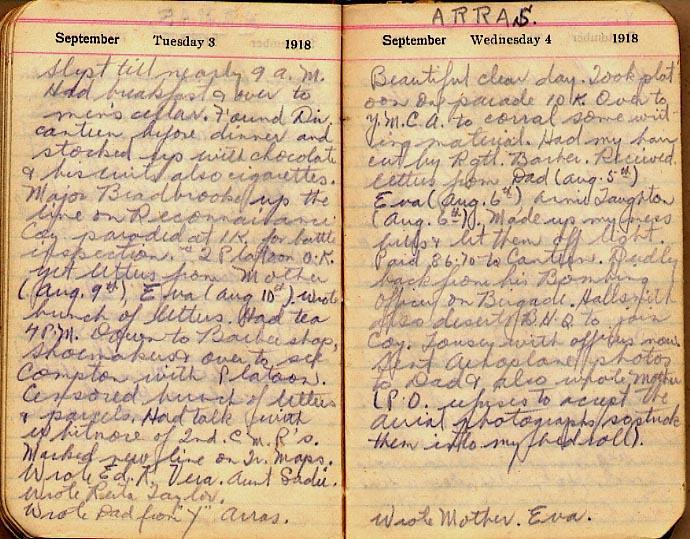 September Tuesday 3 1918
Slept till nearly 9 A.M.
Had breakfast & over to
men's cellar. Found Div.
canteen before dinner and
stocked up with chocolate
& biscuits also cigarettes.
Major Bradbrooke up the
line on Reconnaisance
Coy paraded at 1 K. for battle
inspection. #2 Platoon O.K.
Get letters from Mother
(Aug. 9th), Eva (Aug 10th). Wrote
bunch of letters. Had tea
4 P.M. Down to Barber shop,
Shoemakers & over to see
Compton with Platoon.
Censored bunch of letters
& parcels. Had talk with
Whitmore of 2nd. C.M.R's.
Marked new line on Tr. Maps.
Wrote Ed. K. Vera. Aunt Sadie.
Wrote Reita Taylor.
Wrote Dad from "Y" Arras.
ARRAS.
September Wednesday 4 1918
Beautiful clear day. Took plat
oon on parade 10 K. Over to
Y.M.C.A. to corral some writ
ing material. Had my hair
cut by Batt. Barber. Received
letters from Dad (Aug. 5th)
Eva (Aug. 6th) Arnie Taughton
(Aug. 6th). Made up my mess
bills & let them off light.
Paid 86.70 to Canteen. Dudley
back from his Bombing
Officer on Brigade. Hallsmith
also deserts B.H.Q. to join
Coy. Lousey with officers now.
Sent Aeroplane photos
to Dad & also wrote Mother
(P.O. refuses to accept the
aerial photographs so stuck
them into my bed roll).
Wrote Mother. Eva.